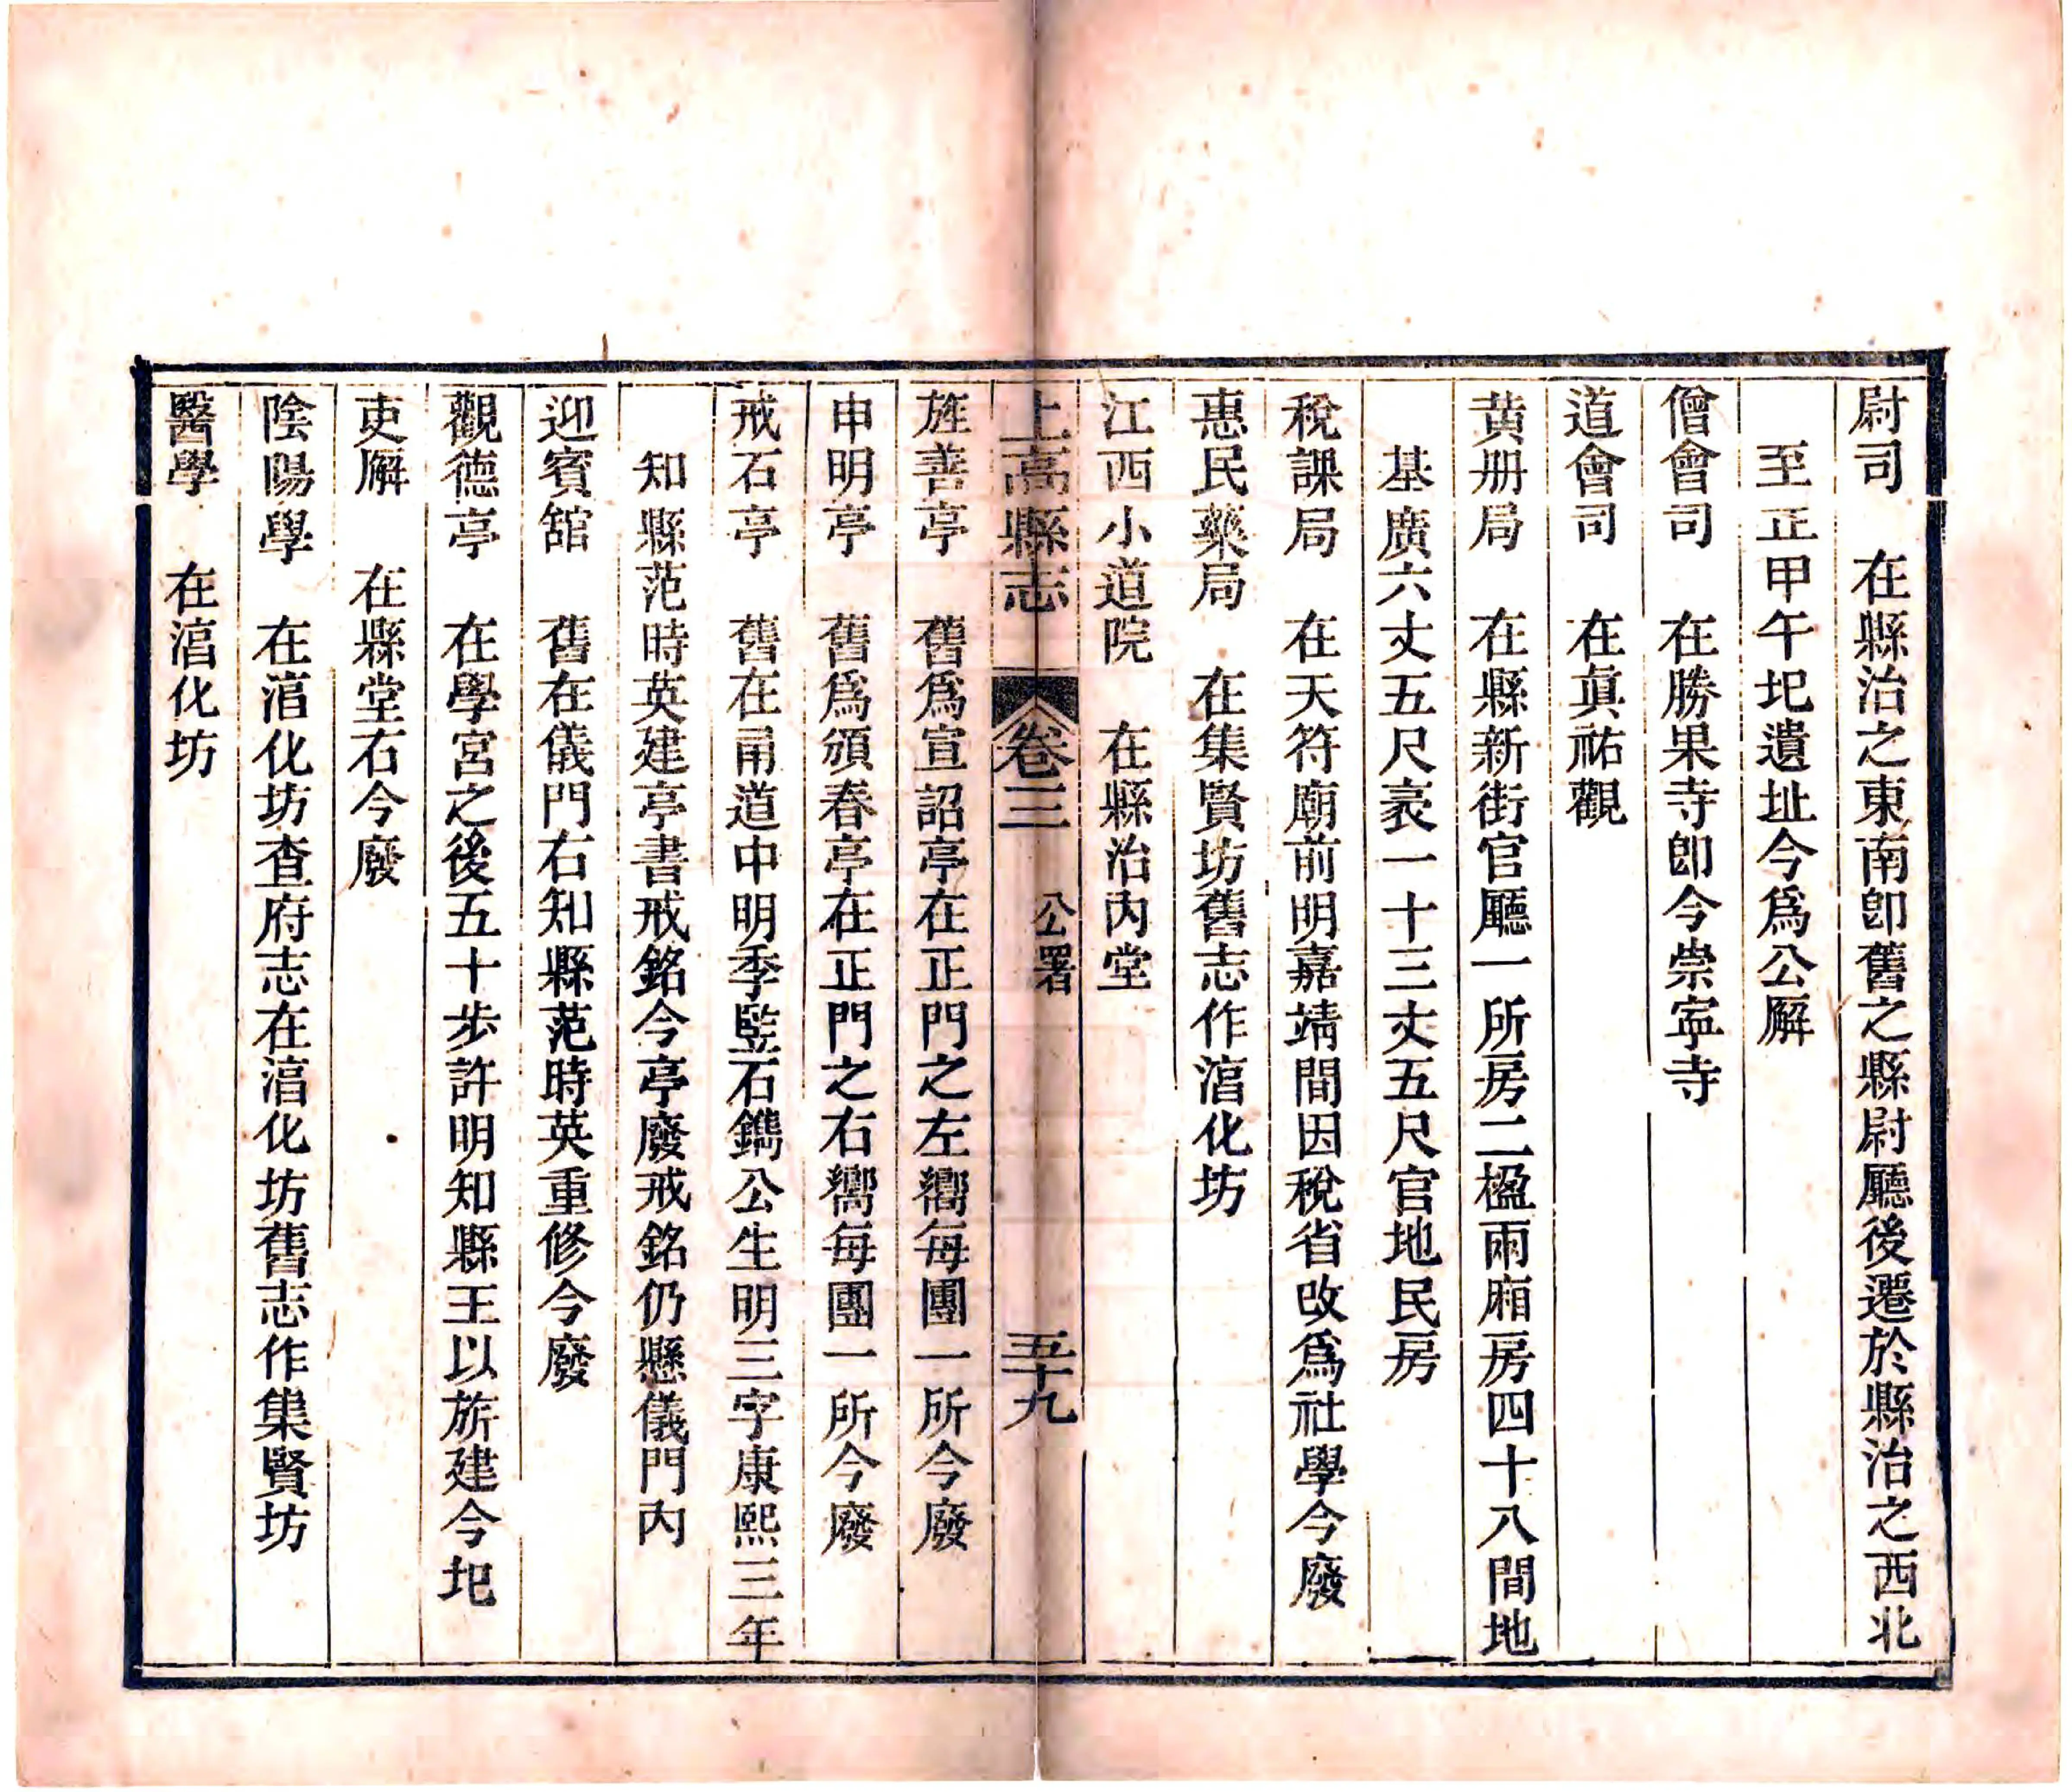 尉司　在縣治之東南卽舊之縣尉廳後遷於縣治之西北
至正甲午圯遺址今爲公廨
僧會司　在勝果寺卽今崇寧寺
道會司　在眞祐觀
黄册局　在縣新街官廳一所房二楹兩廂房四十八間地
基廣六丈五尺袤一十三丈五尺官地民房
稅課局　在天符廟前明嘉靖間因稅省改爲社學今廢
惠民藥局　在集賢坊舊志作㵮化坊
江西小道院　在縣治内堂
上高縣志　卷三　公署　五十九
旌善亭　舊爲宣詔亭在正門之左嚮每團一所今廢
申明亭　舊爲頒春亭在正門之右嚮每團一所今廢
戒石亭　舊在甬道中明季竪石鐫公生明三字康熙三年
知縣范時英建亭書戒銘今亭廢戒銘仍懸儀門内
迎賓舘　舊在儀門右知縣范時英重修今廢
觀德亭　在學宮之後五十步許明知縣王以旂建今圯
吏廨　在縣堂右今廢
陰陽學　在㵮化坊查府志在㵮化坊舊志作集賢坊
醫學　在㵮化坊